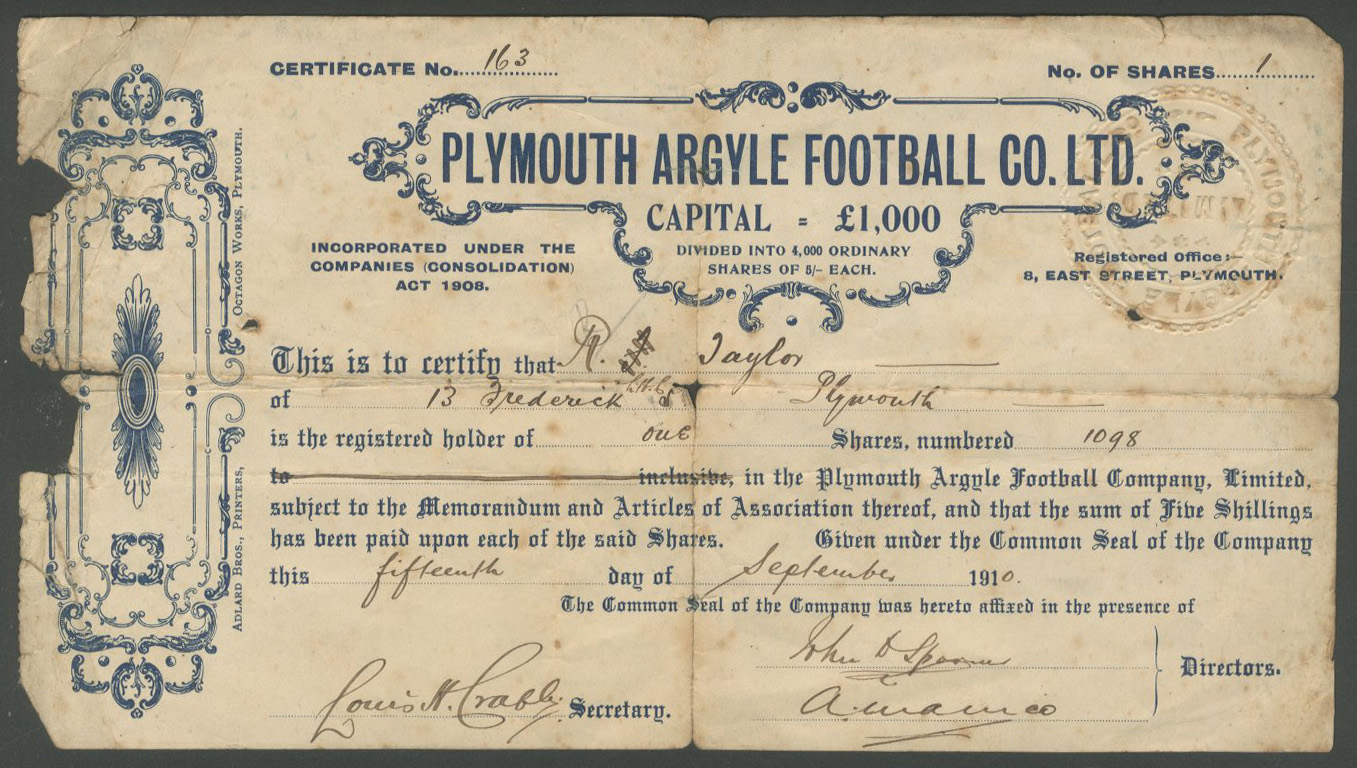 CERTIFICATE No. 163 No. OF SHARES 1
PLYMOUTH ARGYLE FOOTBALL CO. LTD.
CAPITAL = £1,000
DIVIDED INTO 4,000 ORDINARY
SHARES OF 5/- EACH.
INCORPORATED UNDER THE
COMPANIES (CONSOLIDATION)
ACT 1908.
Registered Office:—
8, EAST STREET, PLYMOUTH.
PLYMOUTH ARGYLE
This is to certify that R. Taylor
L.H.C.
of 13 Frederick St Plymouth
is the registered holder of one Shares, numbered 1098
to inclusive, in the Plymouth Argyle Football Company, Limited,
subject to the Memorandum and Articles of Association thereof, and that the sum of Five Shillings
has been paid upon each of the said Shares. Given under the Common Seal of the Company
this fifteenth day of September 1910.
The Common Seal of the Company was hereto affixed in the presence of
John D Spooner
Directors.
Louis H. Crabb Secretary.
ADLARD BROS., PRINTERS, OCTAGON WORKS, PLYMOUTH.